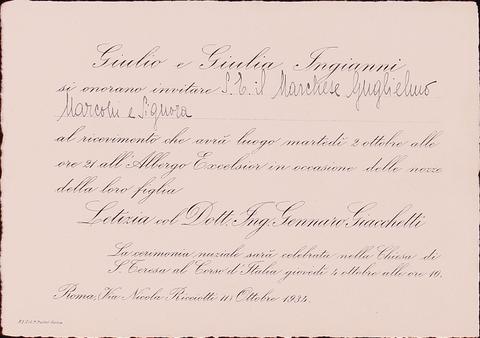 Giulio e Giulia Ingianni
si onorano invitare S. E. il Marchese Guglielmo
Marconi e Signora
al ricevimento che avrà luogo martedì 2 ottobre alle
ore 21 all'Albergo Excelsior in occasione delle nozze
della loro figlia
Letizia col Dott. Ing. Gennaro Giacchetti
La cerimonia nuziale sarà celebrata nella Chiesa di
S. Teresa al Corso d'Italia giovedì 4 ottobre alle ore 10.
Roma, (Via Nicola Ricciotti 11) Ottobre 1934.